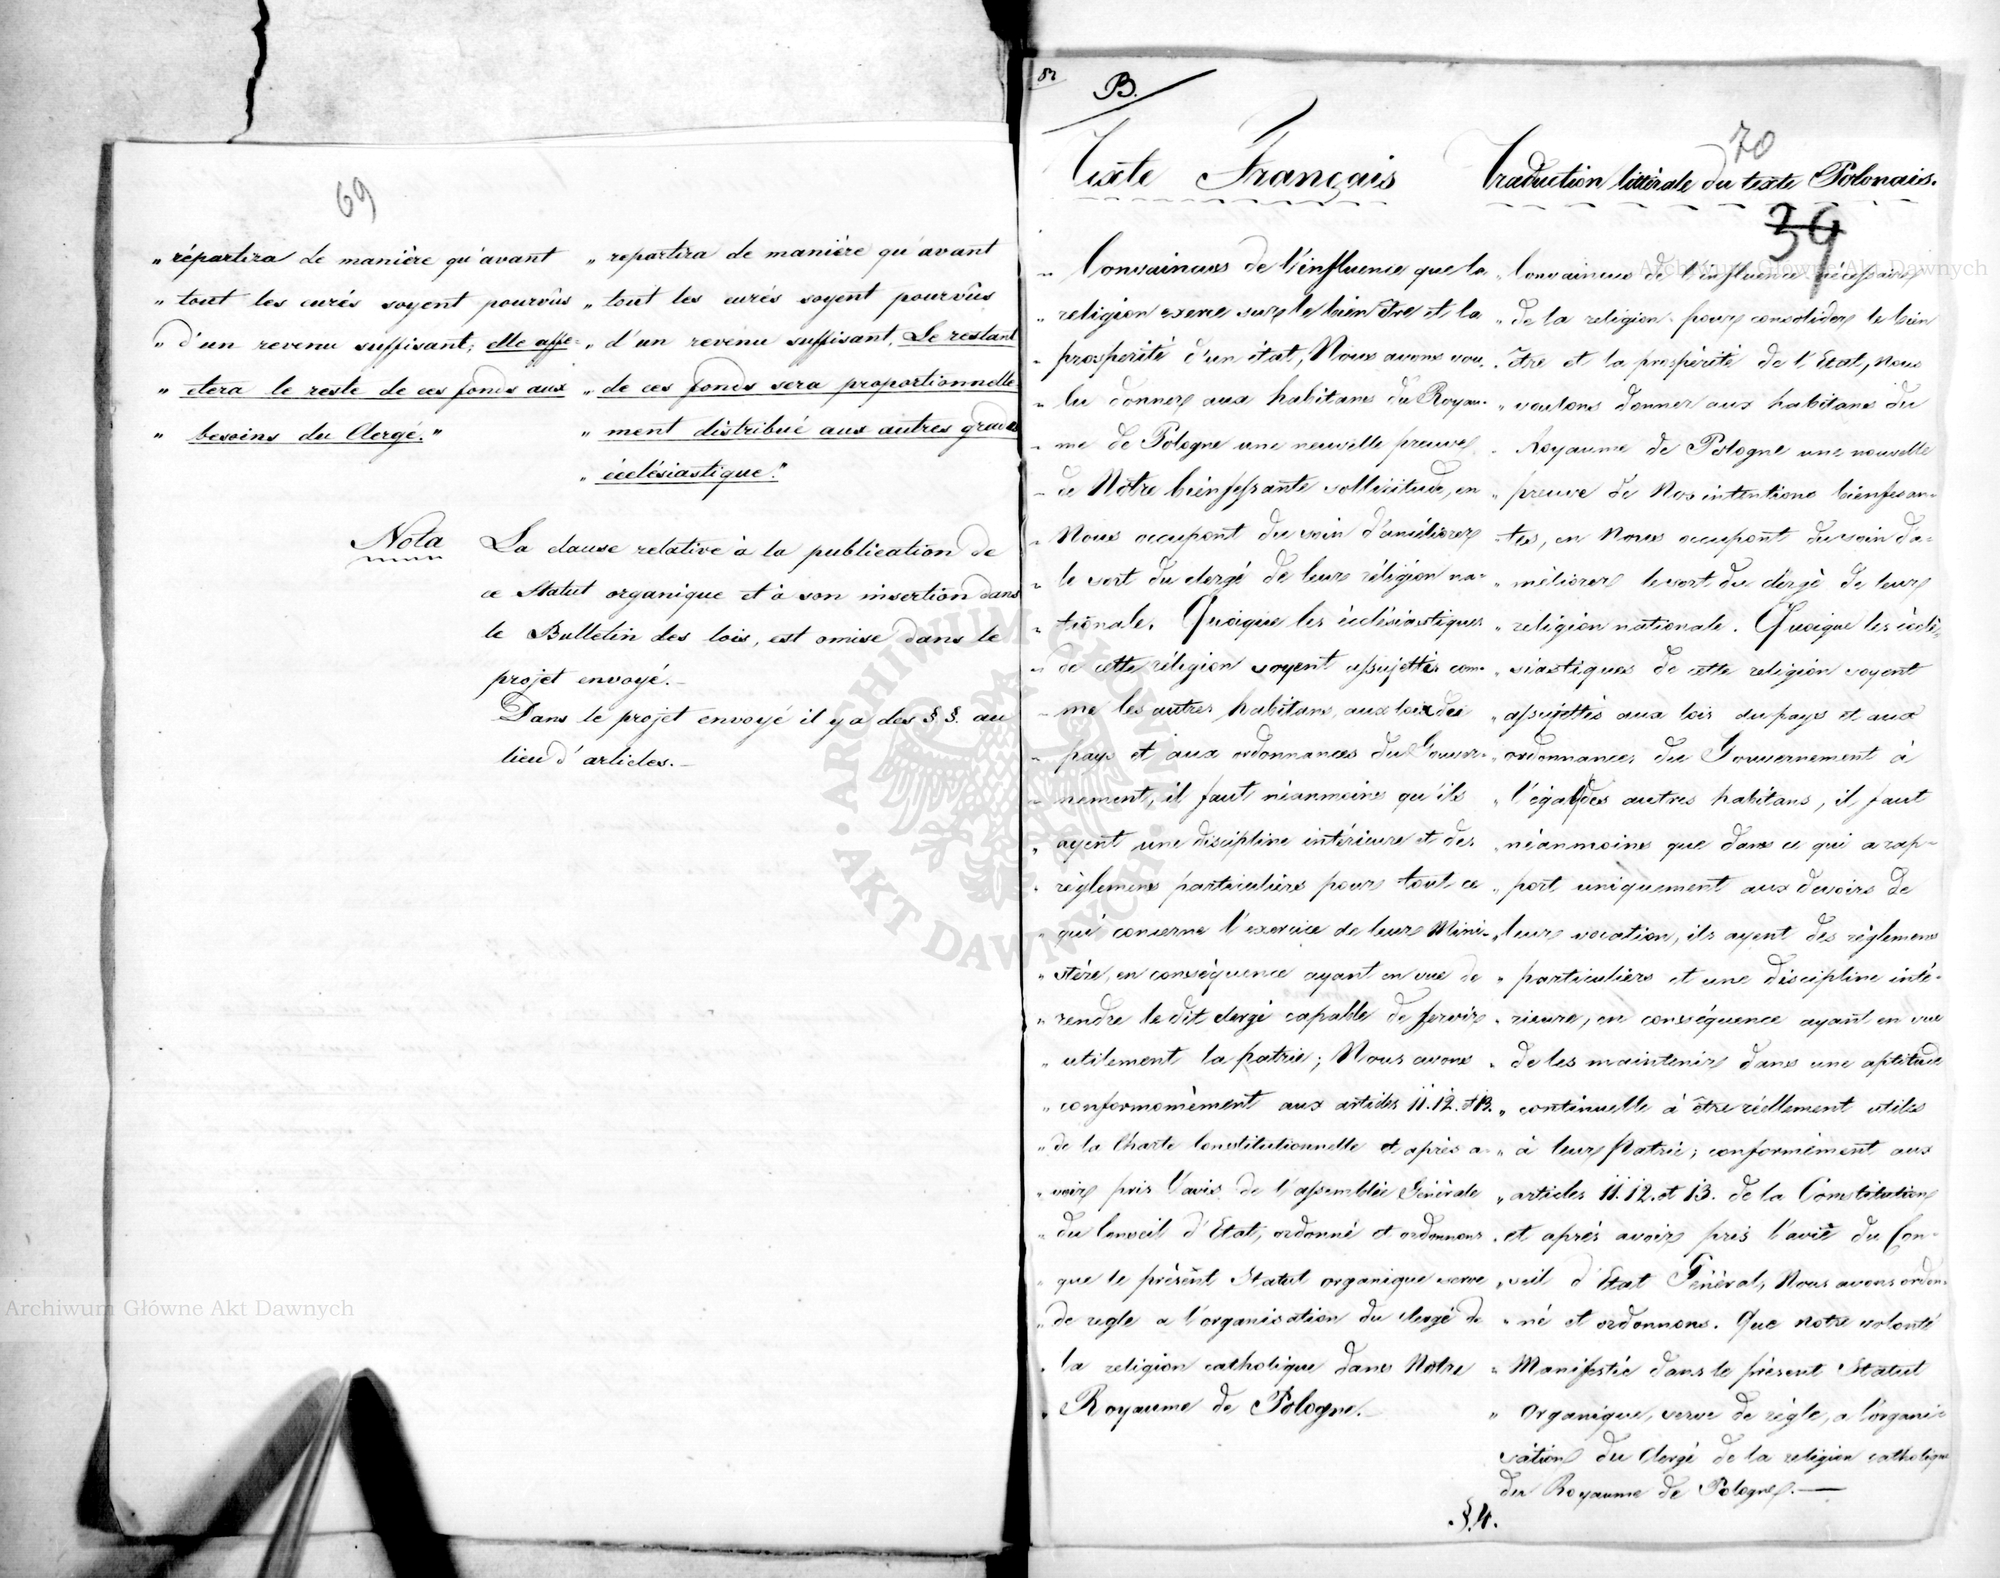 69
„ répartira de manière qu'avant
„ tout les curés soyent pourvûs
„ d'un revenu suffisant; elle affe-
„ ctera le reste de ces fonds aux
„ besoins du Clergé."
„ repartira de manière qu'avant
„ tout les curés soyent pourvûs
„ d'un revenu suffisant. Le restant
„ de ces fonds sera proportionnelle-
„ ment distribué aux autres grades
„ écclésiastique."
Nota
La clause relative à la publication de
ce Statut organique et à son insertion dans
le Bulletin des lois, est omise dans le
projet envoyé.-
Dans le projet envoyé il y a des §.§. au
lieu d'articles.-
B.
70
39
Texte Français
„ Convaincus de l'influence que la
„ religion exerce sur le bien être et la
„ prosperité d'un état, Nous avons vou-
„ lu donner aux habitans du Royau-
„ me de Pologne une nouvelle preuve
„ de Notre bienfesante sollicitude, en
„ Nous occupant du soin d'améliorer
„ le sort du clergé de leur réligion na-
„ tionale. Quoique les écclésiastiques
„ de cette réligion soyent assujettis com-
„ me les autres habitans, aux loix du
„ pays et aux ordonnances du Gouver-
„ nement, il faut néanmoins qu'ils
„ ayent une discipline intérieure et des
„ règlemens particuliers pour tout ce
„ qui concerne l'exercice de leur Mini-
„ stère, en conséquence ayant en vue de
„ rendre le dit clergé capable de servir
„ utilement la patrie; Nous avons
„ conformomèment aux articles 11.12. et 13.
„ de la Charte Constitutionnelle et après a-
„ voir pris l'avis de l'assemblée Générale
„ du Conseil d'Etat, ordonné et ordonnons
„ que le présent Statut organique serve
„ de regle a l'organisation du clergé de
„ la religion catholique dans Notre
„ Royaume de Pologne.-
Traduction littérale du texte Polonais.
„ Convaincus de l'influence nécessaire
„ de la religion pour consolider le bien
„ être et la prospérité de l'Etat, Nous
„ voulons donner aux habitans du
„ Royaume de Pologne une nouvelle
„ preuve de Nos intentions bienfesan-
„ tes, en Nous occupant du soin d'a-
„ méliorer le sort du clergé de leur
„ religion nationale. Quoique les écclé-
„ siastiques de cette religion soyent
„ assujettis aux lois du pays et aux
„ ordonnances du Gouvernement à
„ l'égal des autres habitans, il faut
„ néanmoins que dans ce qui a rap-
„ port uniquement aux devoirs de
„ leur vocation, ils ayent des règlemens
„ particuliers et une discipline inté-
„ rieure, en conséquence ayant en vue
„ de les maintenir dans une aptitude
„ continuelle à être réellement utiles
„ à leur Patrie; conformément aux
„ articles 11.12. et 13. de la Constitution
„ et après avoir pris l'avis du Con-
„ seil d'Etat Général, Nous avons ordon-
„ né et ordonnons. Que notre volonté
„ Manifestée dans le présent Statut
„ Organique, serve de règle, a l'organi-
sation du Clergé de la religion catholique
du Royaume de Pologne.-
Archiwum Główne Akt Dawnych
Archiwum Główne Akt Dawnych
ARCHIWUM GŁÓWNE
AKT DAWNYCH